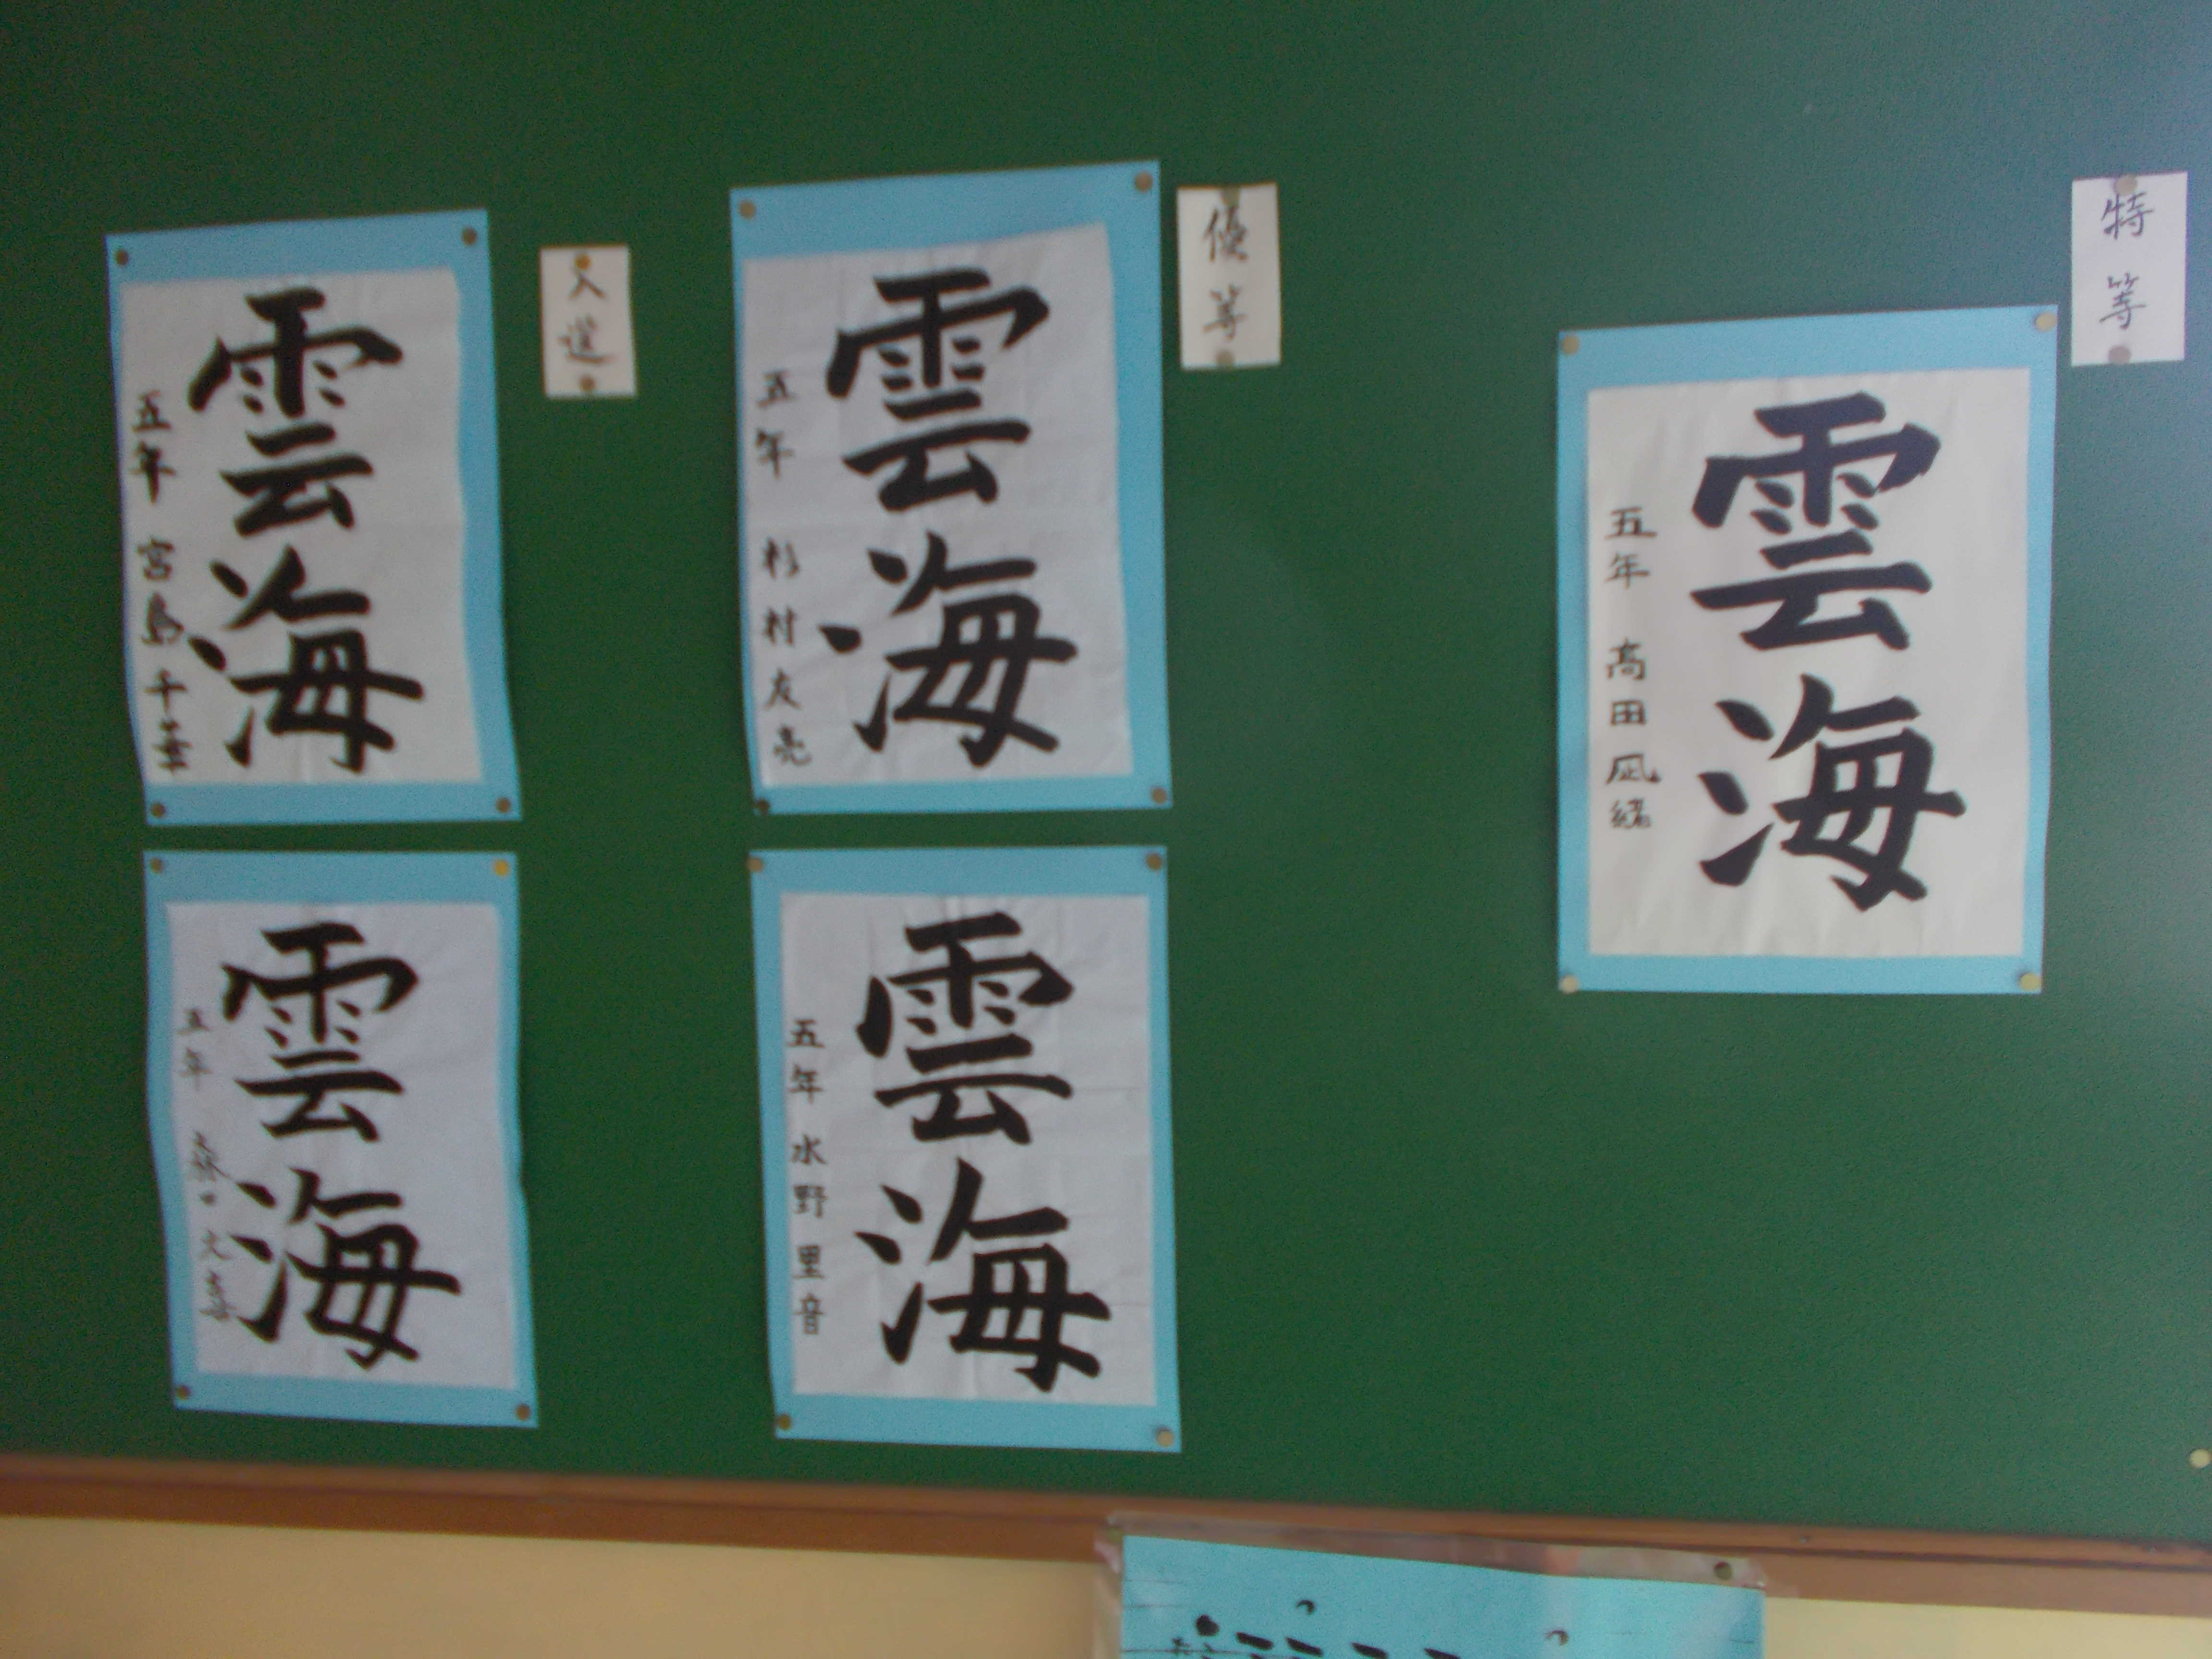 特等
雲海
五年 高田凪緒
優等
雲海
五年 杉村友亮
雲海
五年 水野里音
入選
雲海
五年 宮島千華
雲海
五年 森口文喜